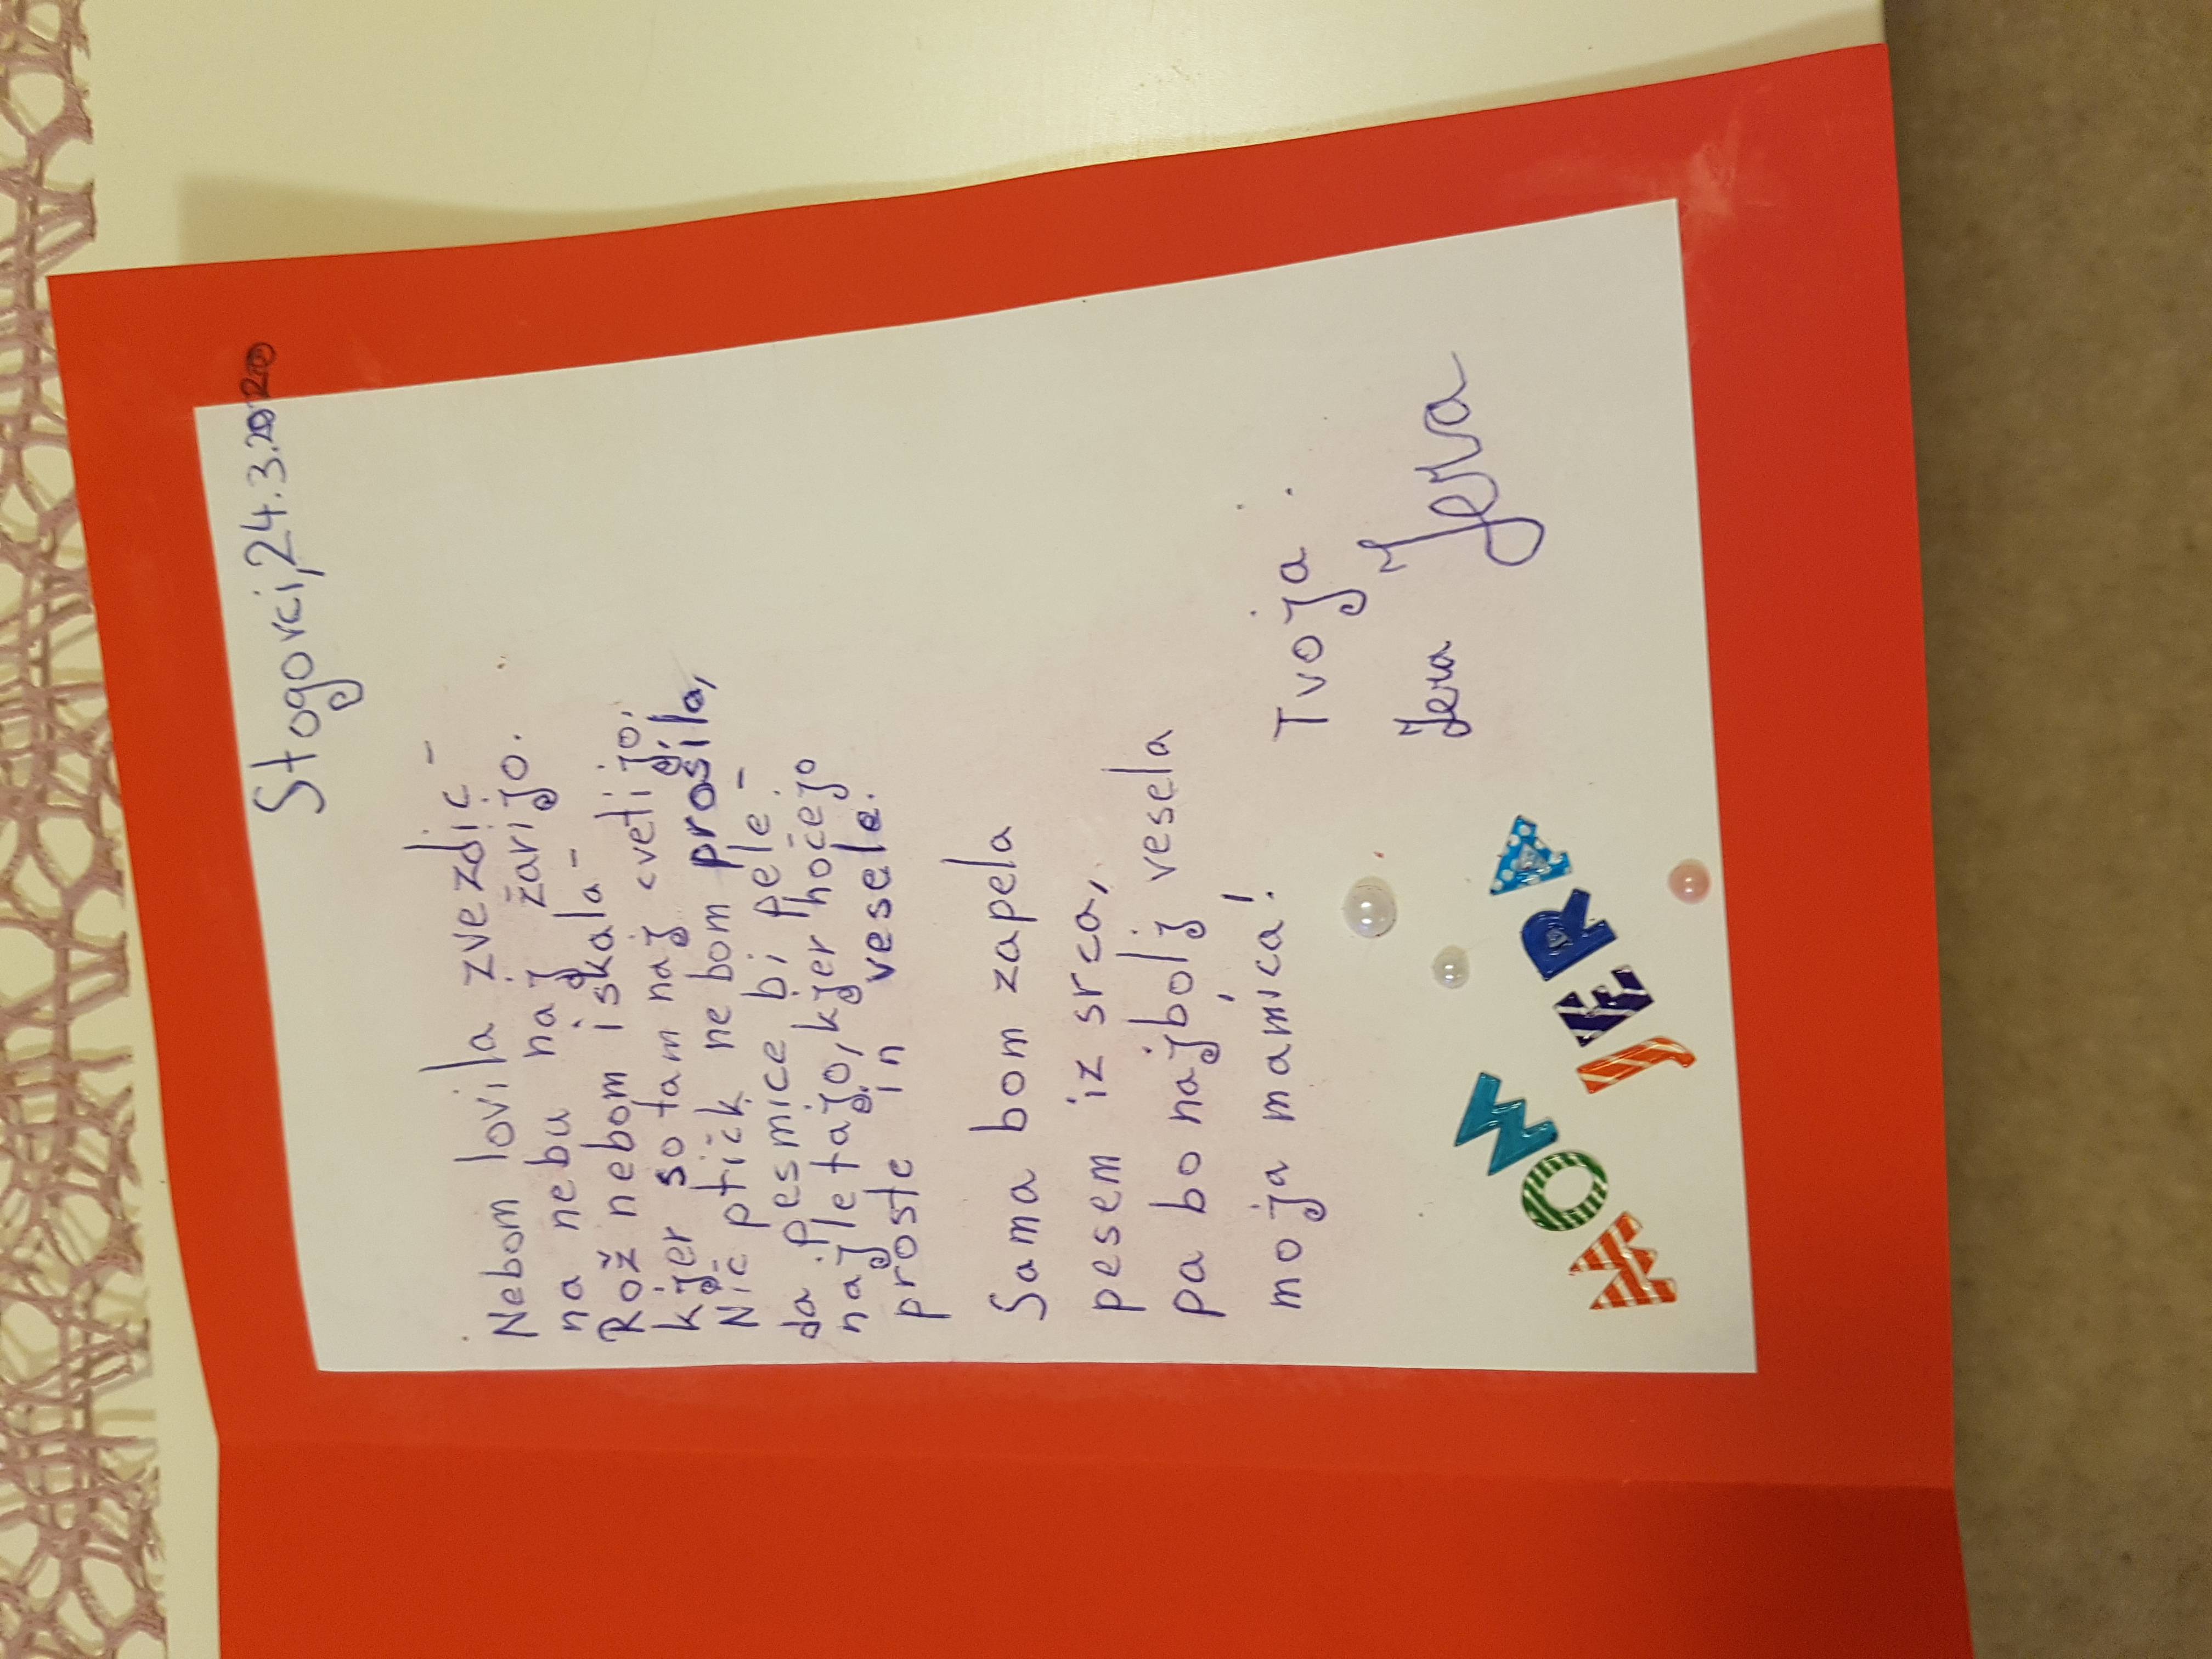 Stogovci, 24.3.2020
Nebom lovila zvezdic -
na nebu naj žarijo.
Rož nebom iskala -
kjer so tam naj cvetijo.
Nič ptičk ne bom prosila,
da pesmice bi pele -
naj letajo, kjer hočejo
proste in vesele.
Sama bom zapela
pesem iz srca,
pa bo najbolj vesela
moja mamica!
Tvoja
Jera Jera
MOM JERA